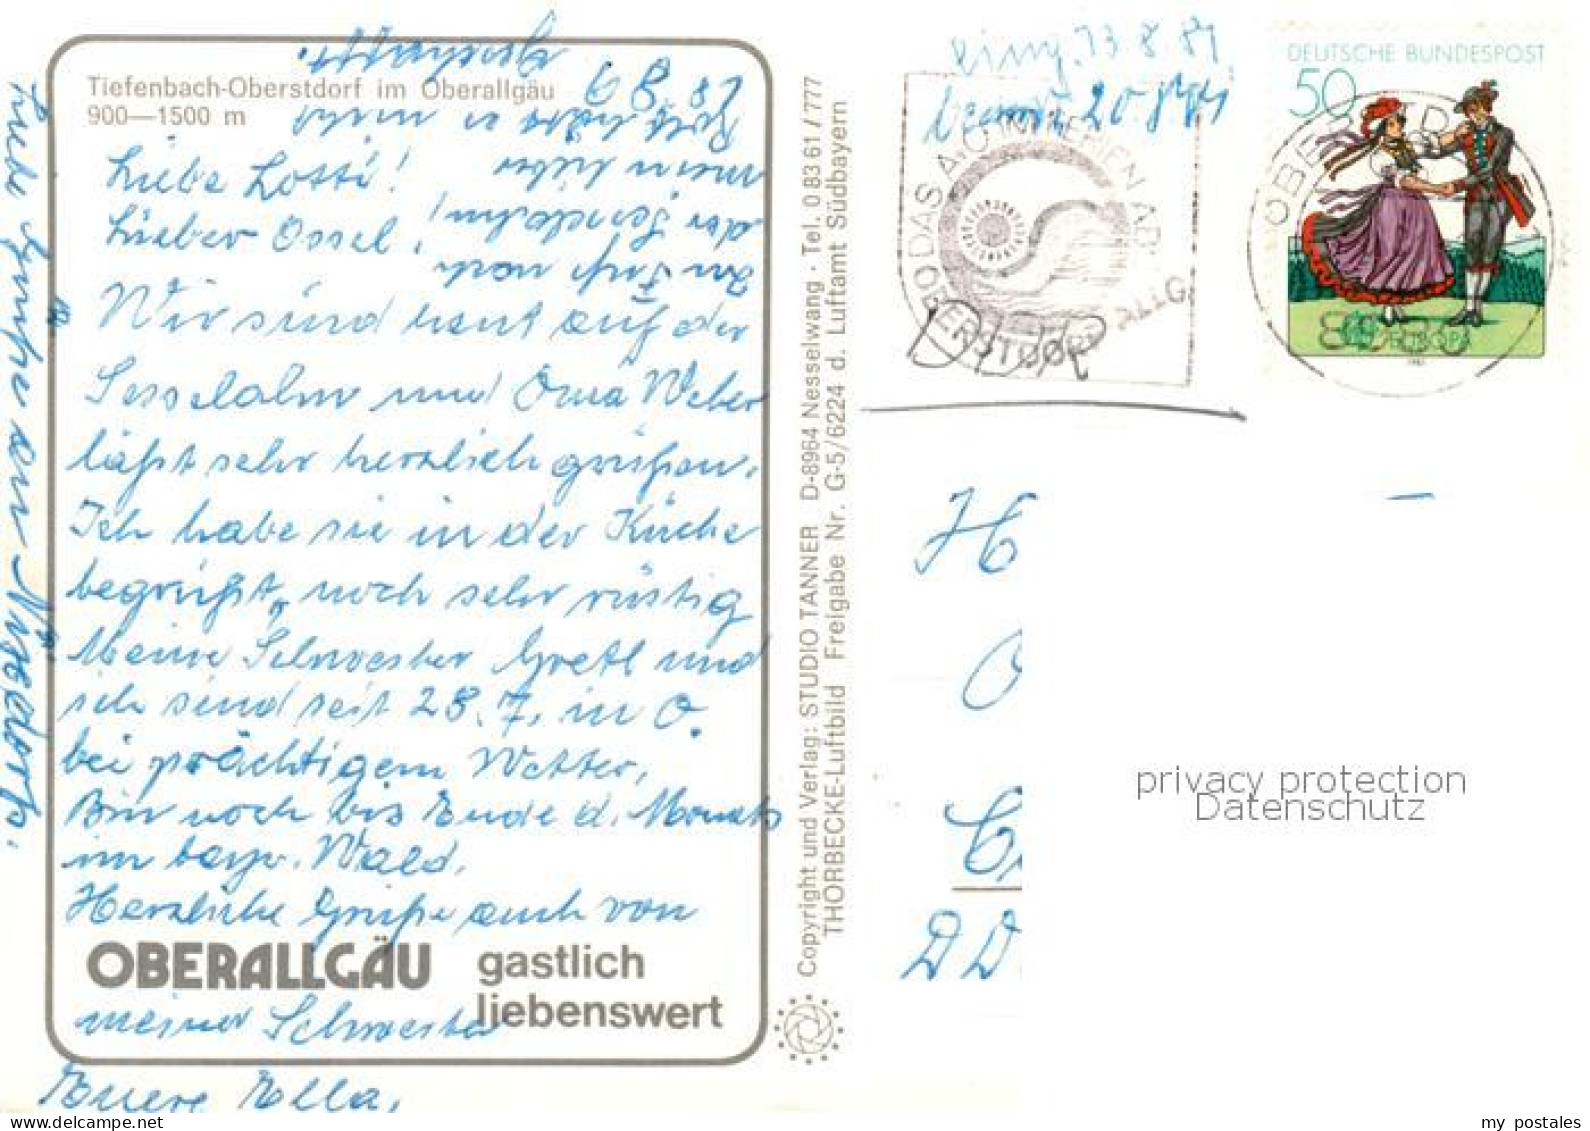 Tiefenbach-Oberstdorf im Oberallgäu
900—1500 m
Liebe Lotti!
Lieber Ossel!
Wir sind heut auf der
Sesselalm und Oma Weber
läßt sehr herzlich grüßen.
Ich habe sie in der Küche
begrüßt, noch sehr rüstig
Meine Schwester Gretl und
ich sind seit 28. 7. in O.
bei prächtigem Wetter,
Bin noch bis Ende d. Monats
im bayr. Wald.
Herzliche Grüße auch von
OBERALLGÄU gastlich
liebenswert
meiner Schwester
Eure Ella,
der
mein lieber
Liebe Grüße an
Copyright und Verlag: STUDIO TANNER D-8964 Nesselwang · Tel. 0 83 61 / 777
THORBECKE-Luftbild Freigabe Nr. G-5/6224 d. Luftamt Südbayern
eing. 13 8 81
20.8.81
DEUTSCHE BUNDESPOST
50
EUROPA
OBERSTDORF ALLG
DDR
H
O
DD
privacy protection
Datenschutz
my postales